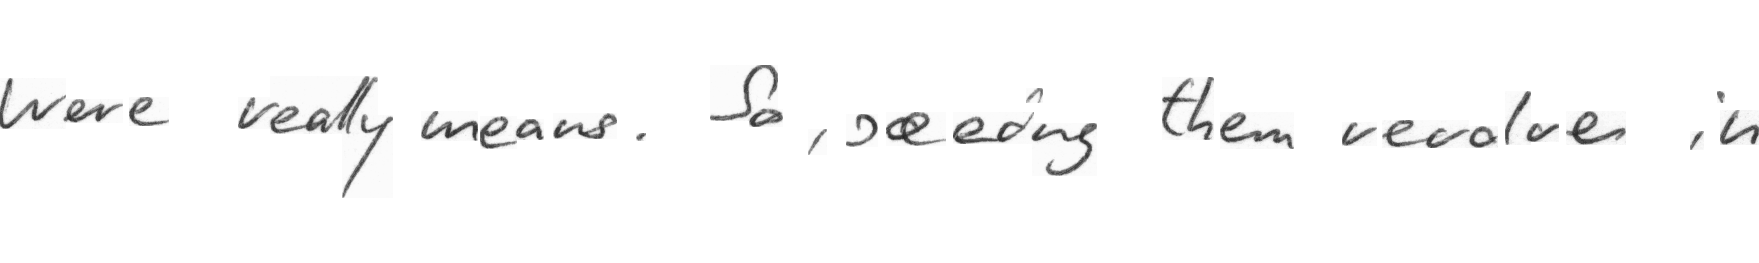 were really means. So, seeing them revolve in